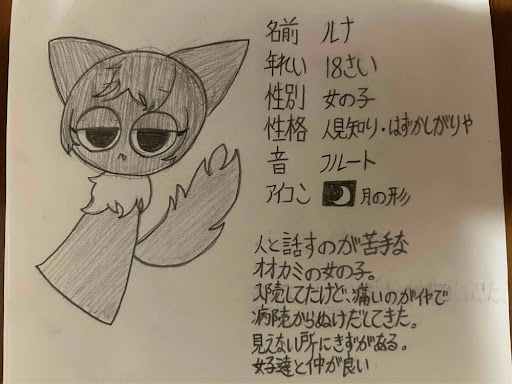 名前 ルナ
年れい 18さい
性別 女の子
性格 人見知り・はずかしがりや
音 フルート
アイコン 月の形
人と話すのが苦手な
オオカミの女の子。
入院してたけど、痛いのがイヤで
病院からぬけだしてきた。
見えない所にきずがある。
女子達と仲が良い